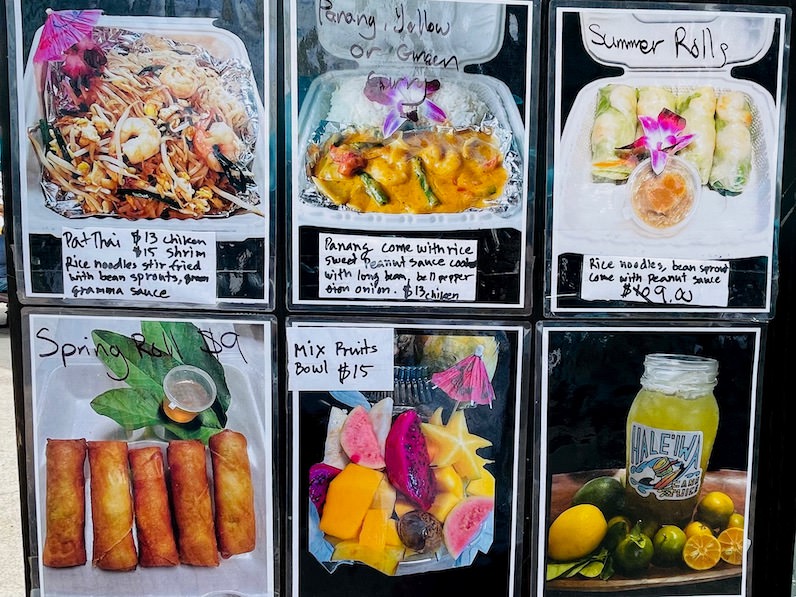 Pat Thai $13 chiken
$15 Shrim
Rice noodles stir fried
with bean sprouts, green
gramma sauce
Panang, Yellow
or Green
Curry
Panang come with rice
sweet peanut sauce cook
with long bean, bell pepper
oion onion. $13 chiken
Summer Rolls
Rice noodles, bean sprout
come with peanut sauce
$9.00
Spring Roll $9
Mix Fruits
Bowl $15
HALE'IWA
CANE
JUICE